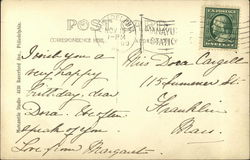 POST
CORRESPONDENCE HERE
NOV
1 PM
STATION
I wish you a
very happy
birthday, dear
Dora. We often
speak of you
Love from Margaret
Miss Dora Cargill
115 Summer St.
Franklin
Mass.